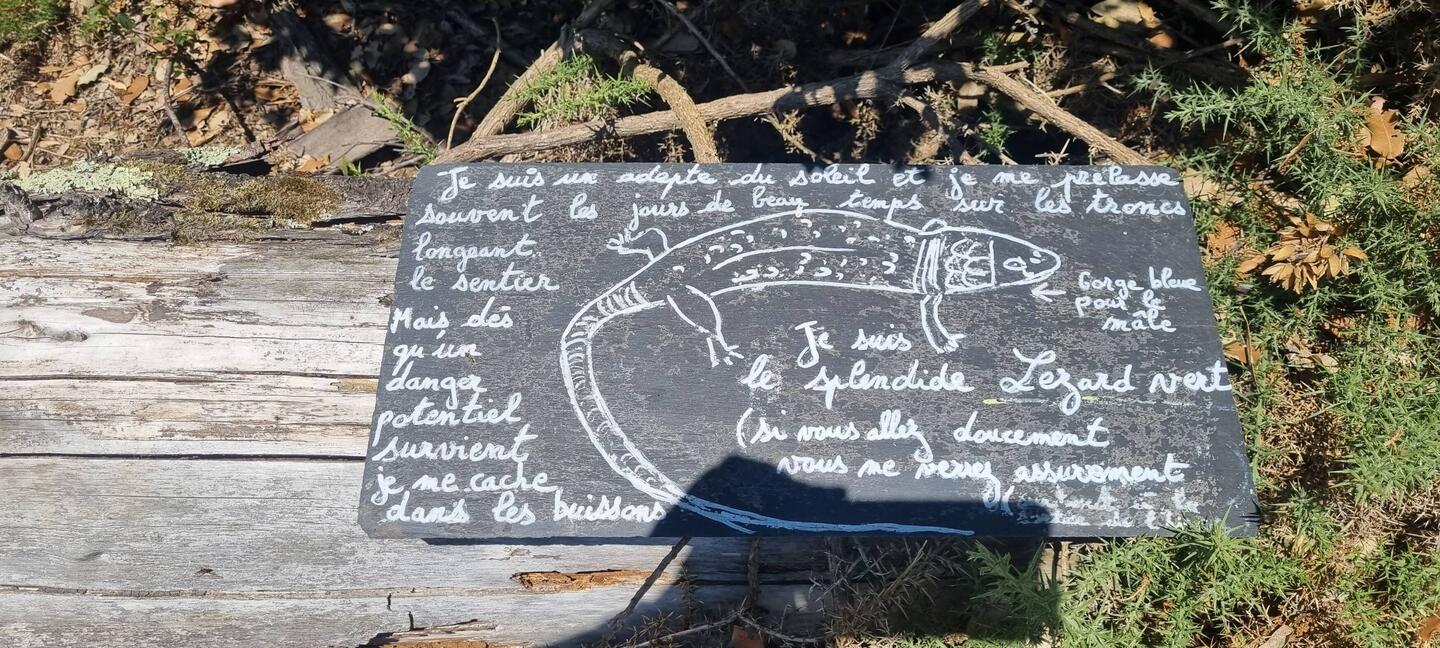 Je suis un adepte du soleil et je me prélasse
souvent les jours de beau temps sur les troncs
longeant
le sentier
Mais dès
qu'un
danger
potentiel
survient
je me cache
dans les buissons
Gorge bleue
pour le
mâle
Je suis
le splendide Lezard vert
(si vous allez doucement
vous me verrez assurement